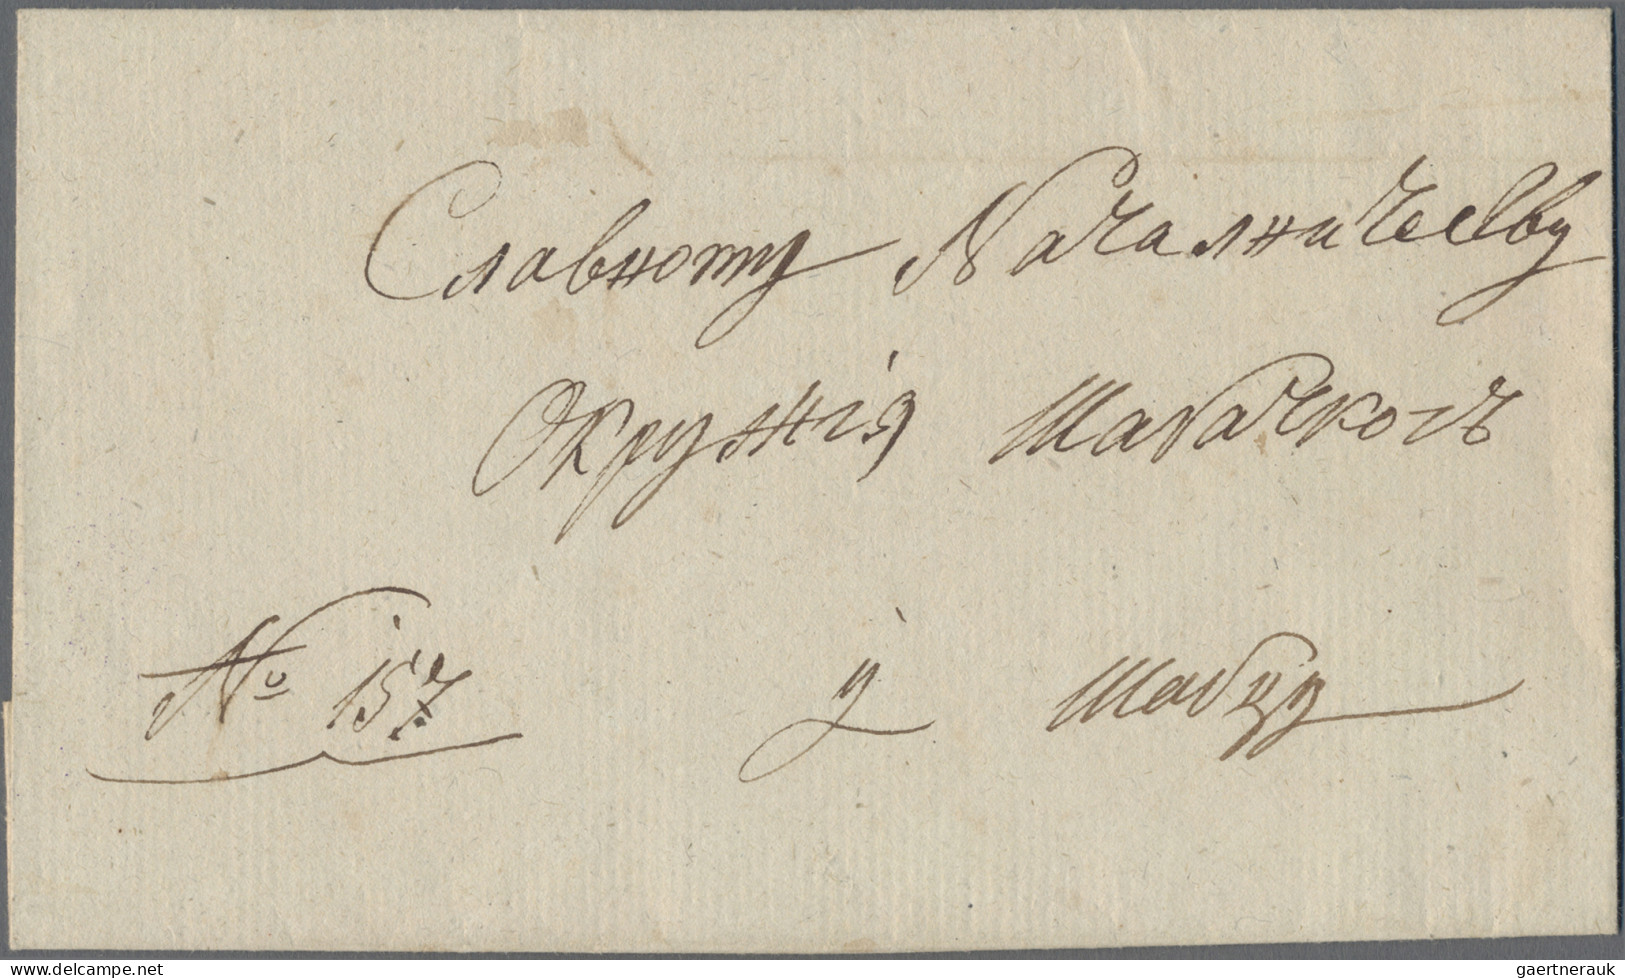 Славному Началничеству
Окружія Шабачкогъ
№ 157 у Шабцу
delcampe.net
gaertnerauk